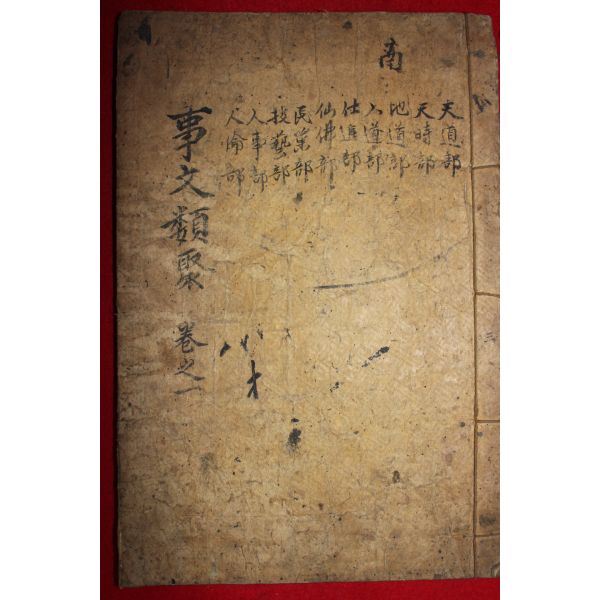 商
天道部
天時部
地道部
人道部
仕進部
仙佛部
民業部
技藝部
人事部
人倫部
事文類聚 卷之一